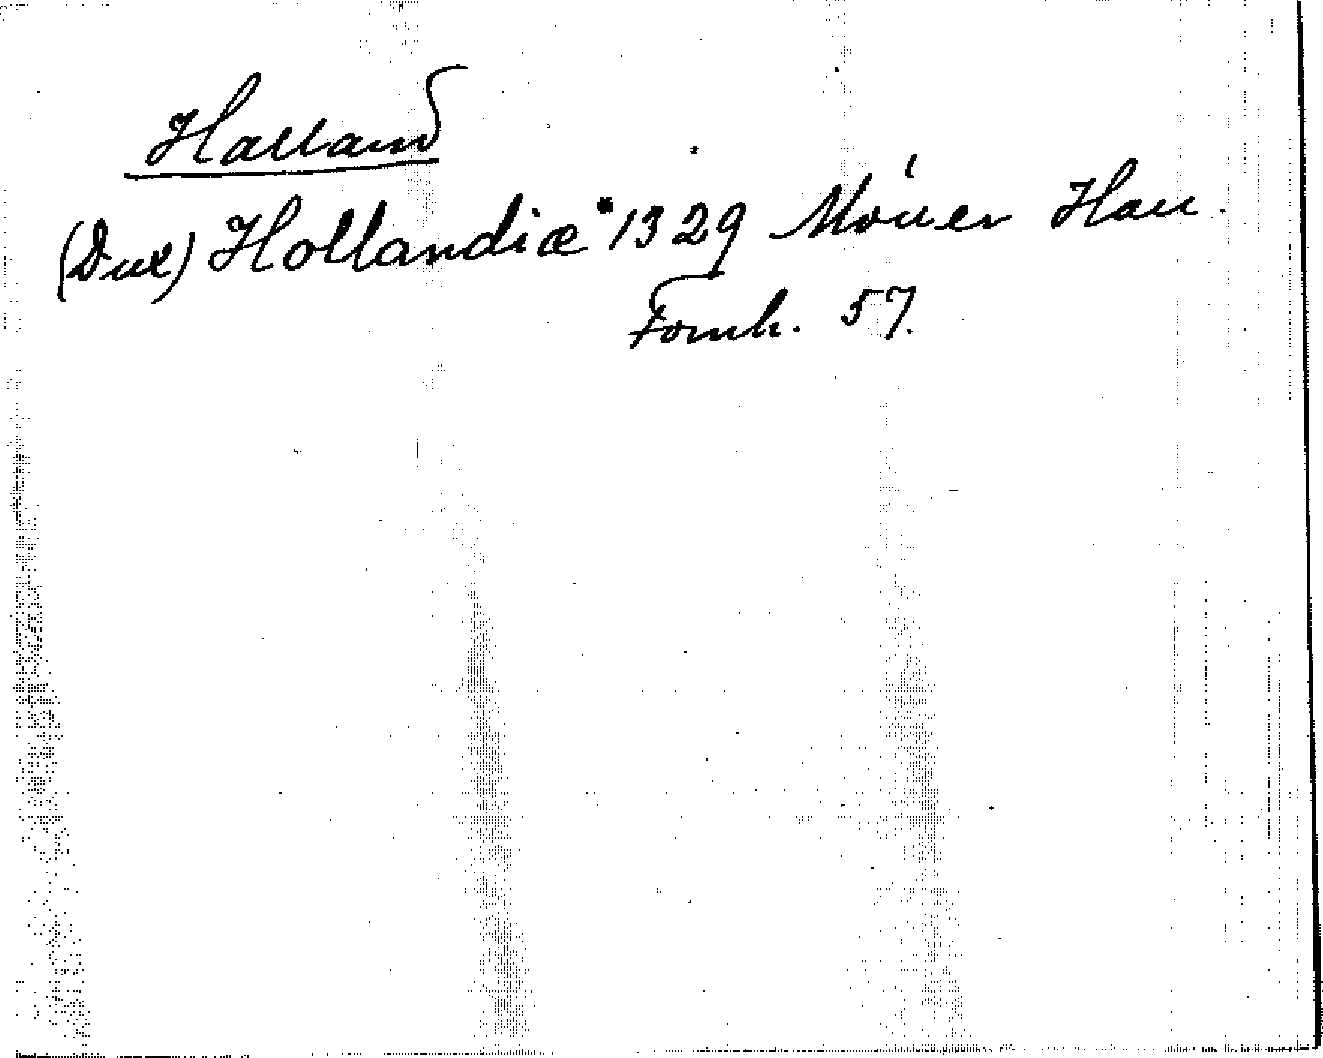 Halland
(Dux) Hollandiæ 1329 Möller Hall.
Fornh. 57.